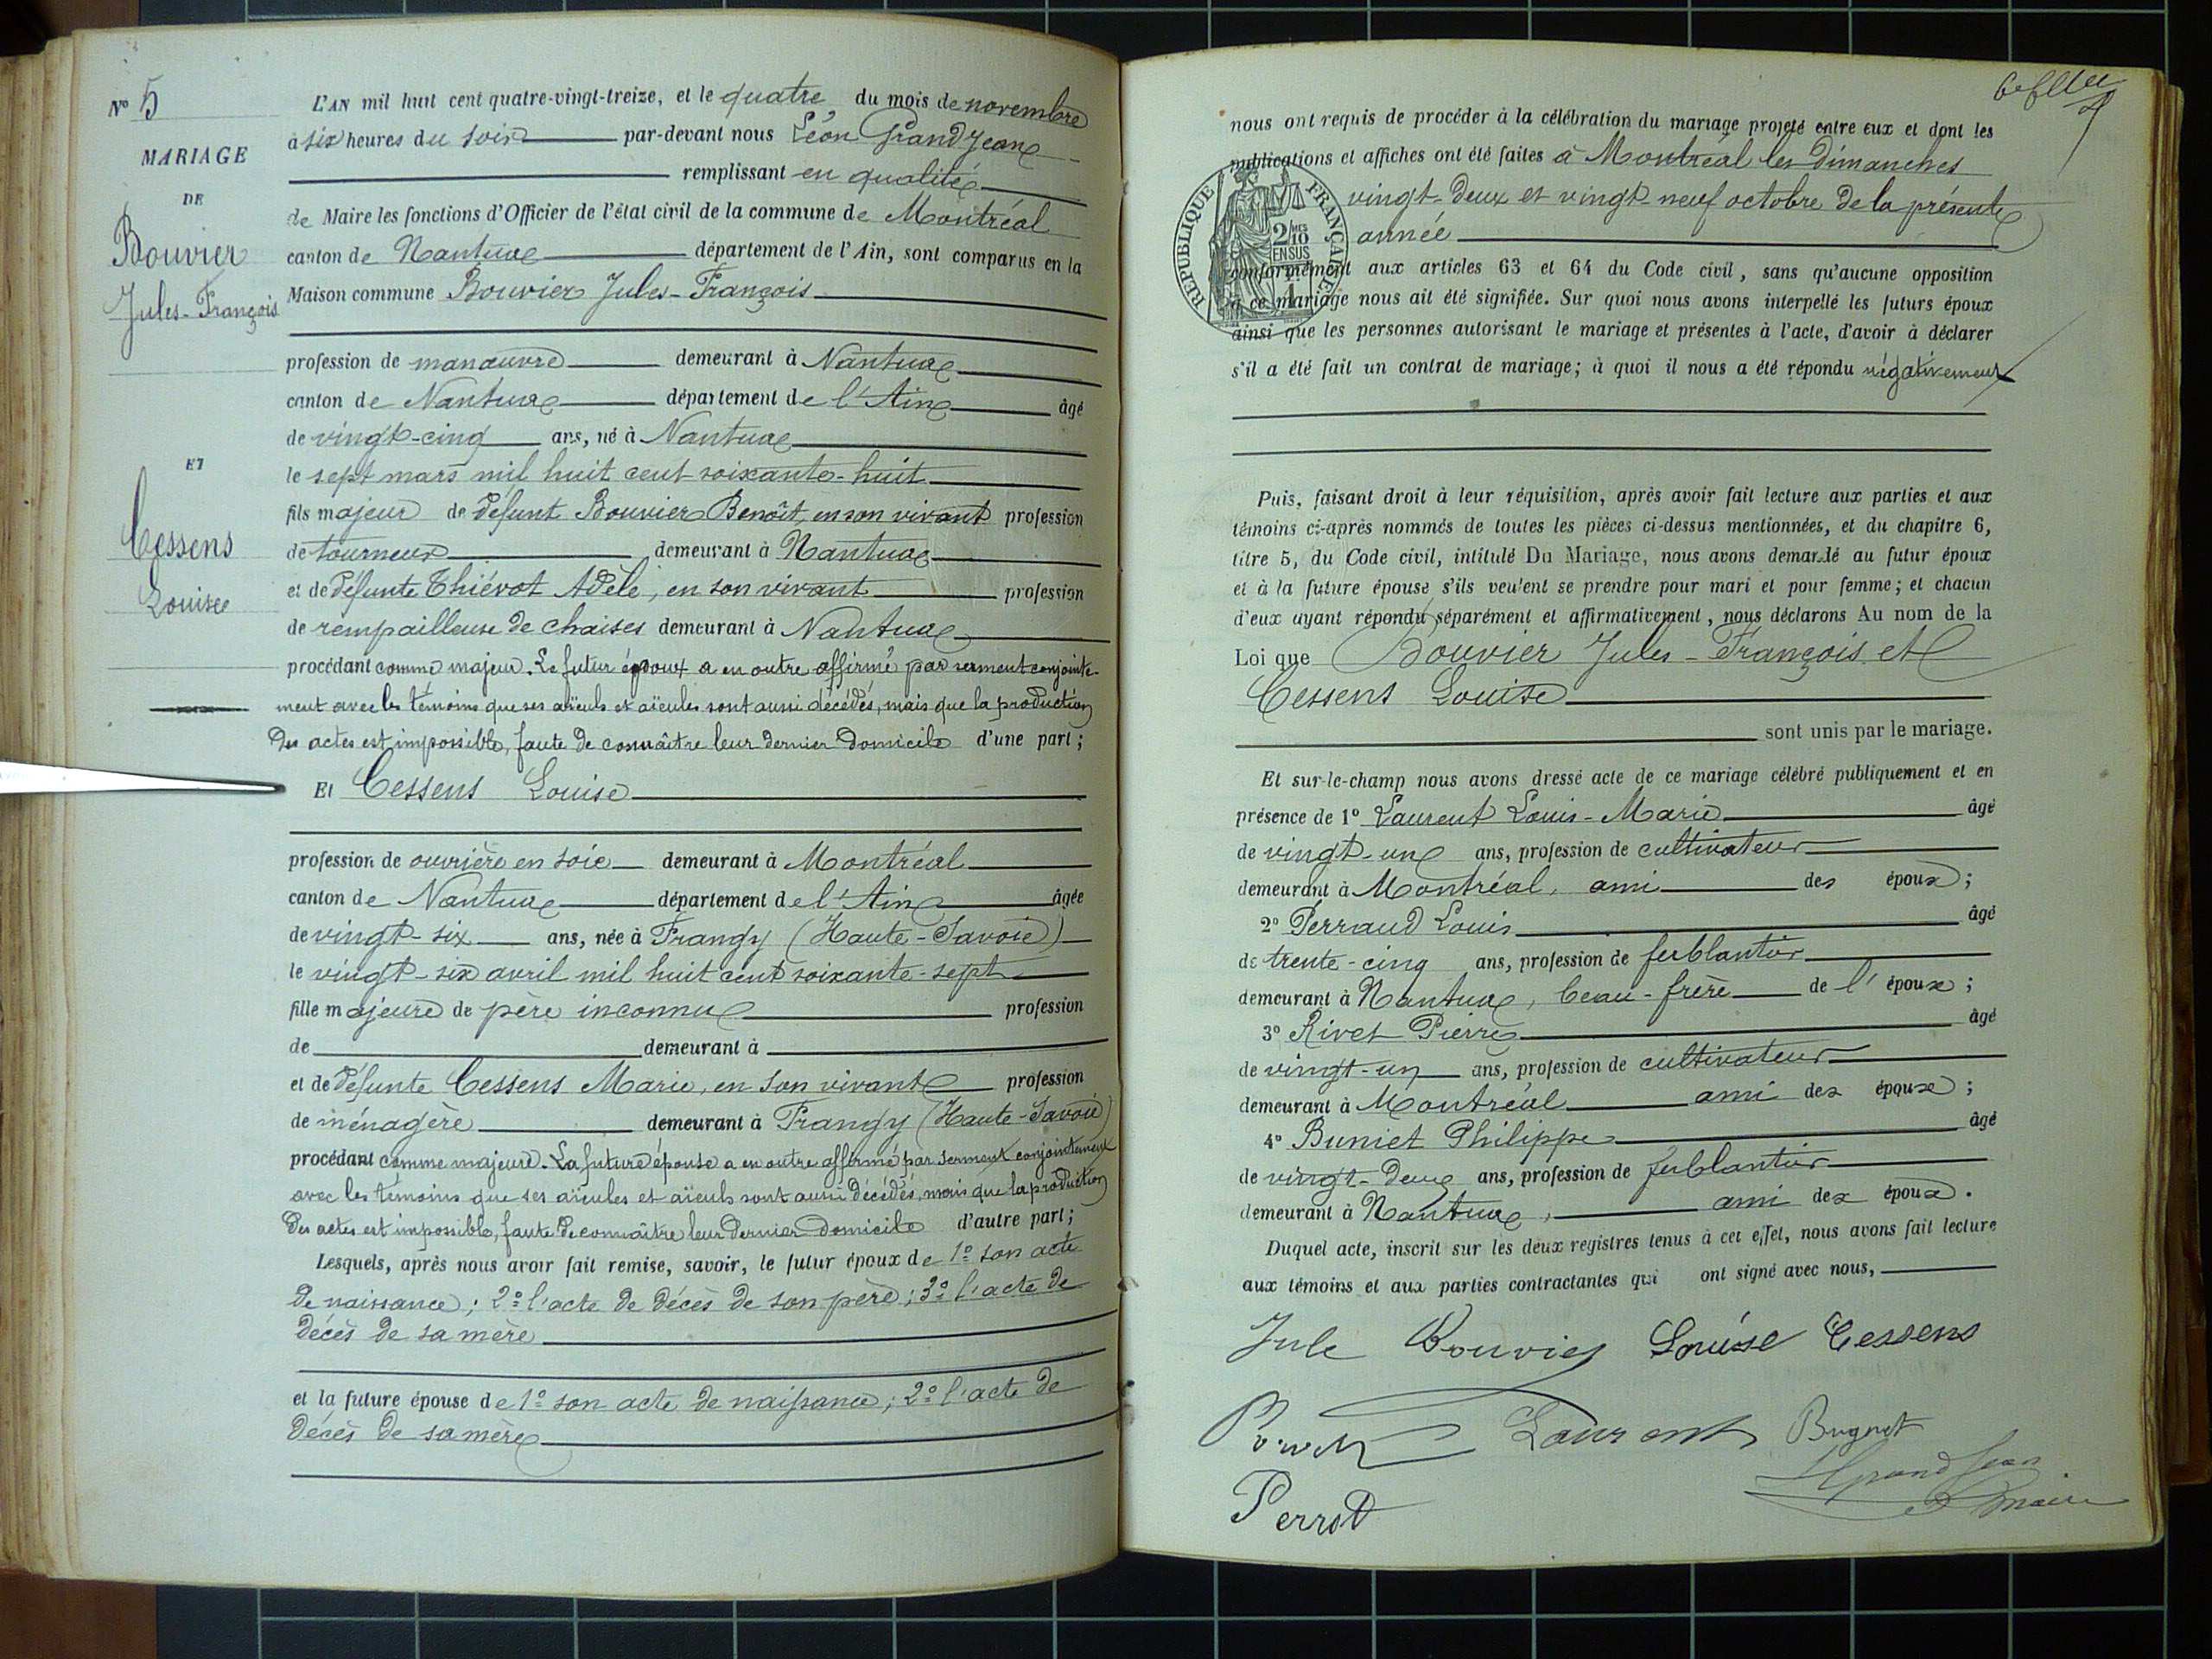 N° 5
MARIAGE
DE
Bouvier
Jules-François
ET
Cessens
Louise
L'AN mil huit cent quatre-vingt-treize, et le quatre du mois de novembre
à six heures du soir par-devant nous Léon Grandjean
remplissant en qualité
de Maire les fonctions d'Officier de l'état civil de la commune de Montréal
canton de Nantua département de l'Ain, sont comparus en la
Maison commune Bouvier Jules-François
profession de manœuvre demeurant à Nantua
canton de Nantua département de l'Ain âgé
de vingt-cinq ans, né à Nantua
le sept mars mil huit cent soixante-huit
fils majeur de défunt Bouvier Benoît, en son vivant profession
de tourneur demeurant à Nantua
et de défunte Thiévot Adèle, en son vivant profession
de rempailleuse de chaises demeurant à Nantua
procédant comme majeur. Le futur époux a en outre affirmé par serment conjointe-
ment avec les témoins que ses aïeuls et aïeules sont aussi décédés, mais que la production
des actes est impossible, faute de connaître leur dernier domicile d'une part;
Et Cessens Louise
profession de ouvrière en soie demeurant à Montréal
canton de Nantua département de l'Ain âgée
de vingt-six ans, née à Frangy (Haute-Savoie)
le vingt-six avril mil huit cent soixante-sept
fille majeure de père inconnu profession
de demeurant à
et de défunte Cessens Marie, en son vivant profession
de ménagère demeurant à Frangy (Haute-Savoie)
procédant comme majeure. La future épouse a en outre affirmé par serment conjointement
avec les témoins que ses aïeules et aïeuls sont aussi décédés, mais que la production
des actes est impossible, faute de connaître leur dernier domicile d'autre part;
Lesquels, après nous avoir fait remise, savoir, le futur époux de 1° son acte
de naissance; 2° l'acte de décès de son père; 3° l'acte de
décès de sa mère
et la future épouse de 1° son acte de naissance; 2° l'acte de
décès de sa mère
nous ont requis de procéder à la célébration du mariage projeté entre eux et dont les
publications et affiches ont été faites à Montréal les dimanches
vingt-deux et vingt neuf octobre de la présente
année
REPUBLIQUE FRANÇAISE
2/10 EN SUS
conformément aux articles 63 et 64 du Code civil, sans qu'aucune opposition
à ce mariage nous ait été signifiée. Sur quoi nous avons interpellé les futurs époux
ainsi que les personnes autorisant le mariage et présentes à l'acte, d'avoir à déclarer
s'il a été fait un contrat de mariage; à quoi il nous a été répondu négativement
Puis, faisant droit à leur réquisition, après avoir fait lecture aux parties et aux
témoins ci-après nommés de toutes les pièces ci-dessus mentionnées, et du chapitre 6,
titre 5, du Code civil, intitulé Du Mariage, nous avons demandé au futur époux
et à la future épouse s'ils veulent se prendre pour mari et pour femme; et chacun
d'eux ayant répondu séparément et affirmativement, nous déclarons Au nom de la
Loi que Bouvier Jules-François et
Cessens Louise
sont unis par le mariage.
Et sur-le-champ nous avons dressé acte de ce mariage célébré publiquement et en
présence de 1° Laurent Louis-Marie âgé
de vingt-un ans, profession de cultivateur
demeurant à Montréal, ami des époux;
2° Perraud Louis âgé
de trente-cinq ans, profession de ferblantier
demeurant à Nantua, beau-frère de l'époux;
3° Rivet Pierre âgé
de vingt-un ans, profession de cultivateur
demeurant à Montréal ami des époux;
4° Buniet Philippe âgé
de vingt-deux ans, profession de ferblantier
demeurant à Nantua, ami des époux.
Duquel acte, inscrit sur les deux registres tenus à cet effet, nous avons fait lecture
aux témoins et aux parties contractantes qui ont signé avec nous,
Jule Bouvier Louise Cessens
Laurent
Grandjean
Perrod maire